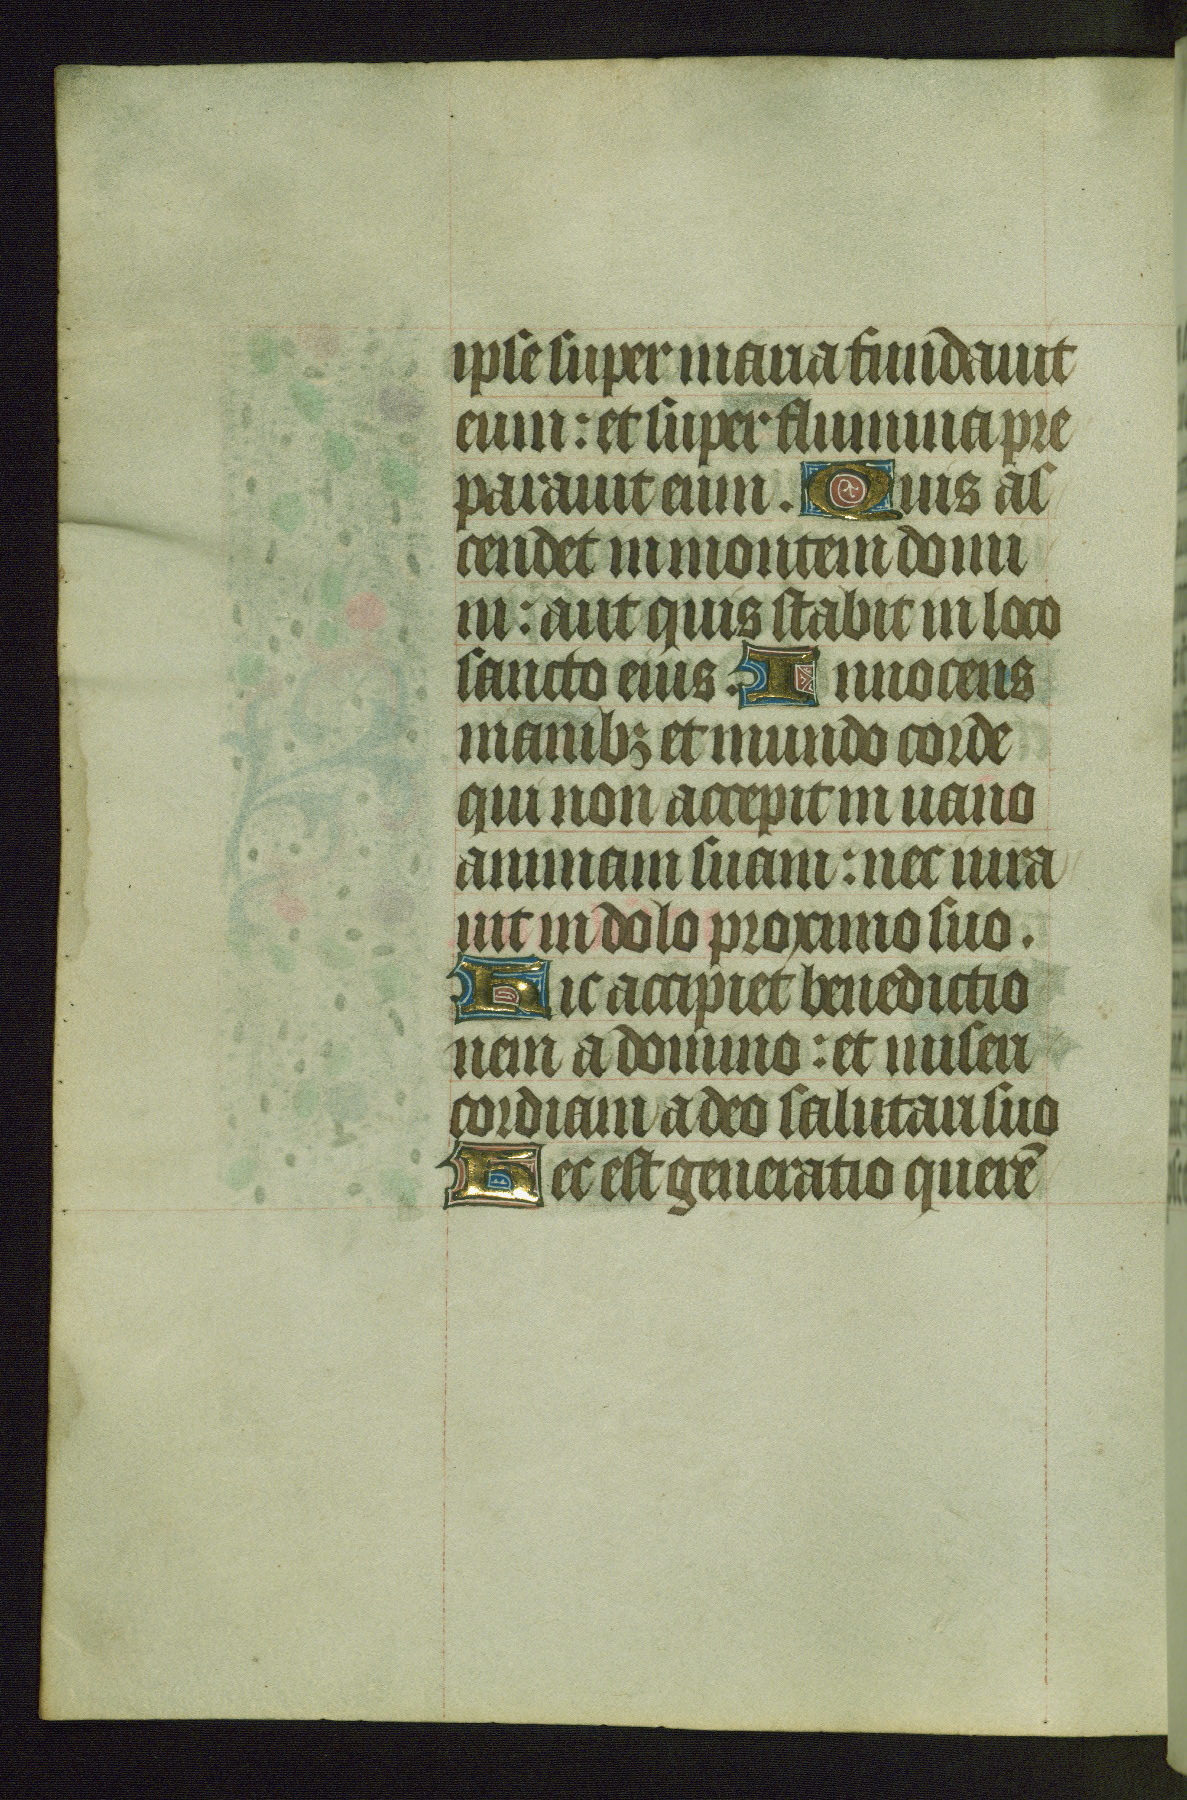 ipse super maria fundauit
eum : et super flumina pre
parauit eum . Quis as
cendet in montem domi
ni : aut quis stabit in loco
sancto eius . Innocens
manibꝫ et mundo corde
qui non accepit in uano
animam suam : nec iura
uit in dolo proximo suo .
Hic accipiet benedictio
nem a domino : et miseri
cordiam a deo salutari suo
Hec est generatio querē